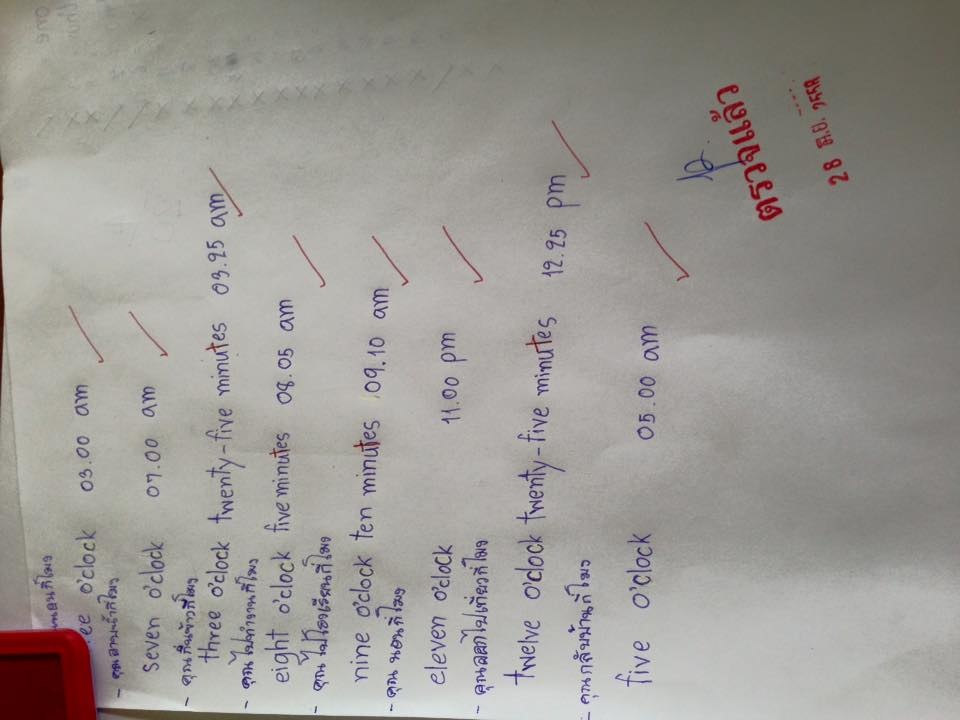 นอนกี่โมง
ee o'clock 03.00 am
- คุณอาบน้ำกี่โมง
seven o'clock 07.00 am
- คุณกินข้าวกี่โมง
three o'clock twenty-five minutes 03.25 am
- คุณไปทำงานกี่โมง
eight o'clock five minutes 08.05 am
- คุณไปโรงเรียนกี่โมง
nine o'clock ten minutes 09.10 am
- คุณนอนกี่โมง
eleven o'clock 11.00 pm
- คุณออกไปเที่ยวกี่โมง
twelve o'clock twenty-five minutes 12.25 pm
- คุณกลับบ้านกี่โมง
five o'clock 05.00 am
ตรวจแล้ว